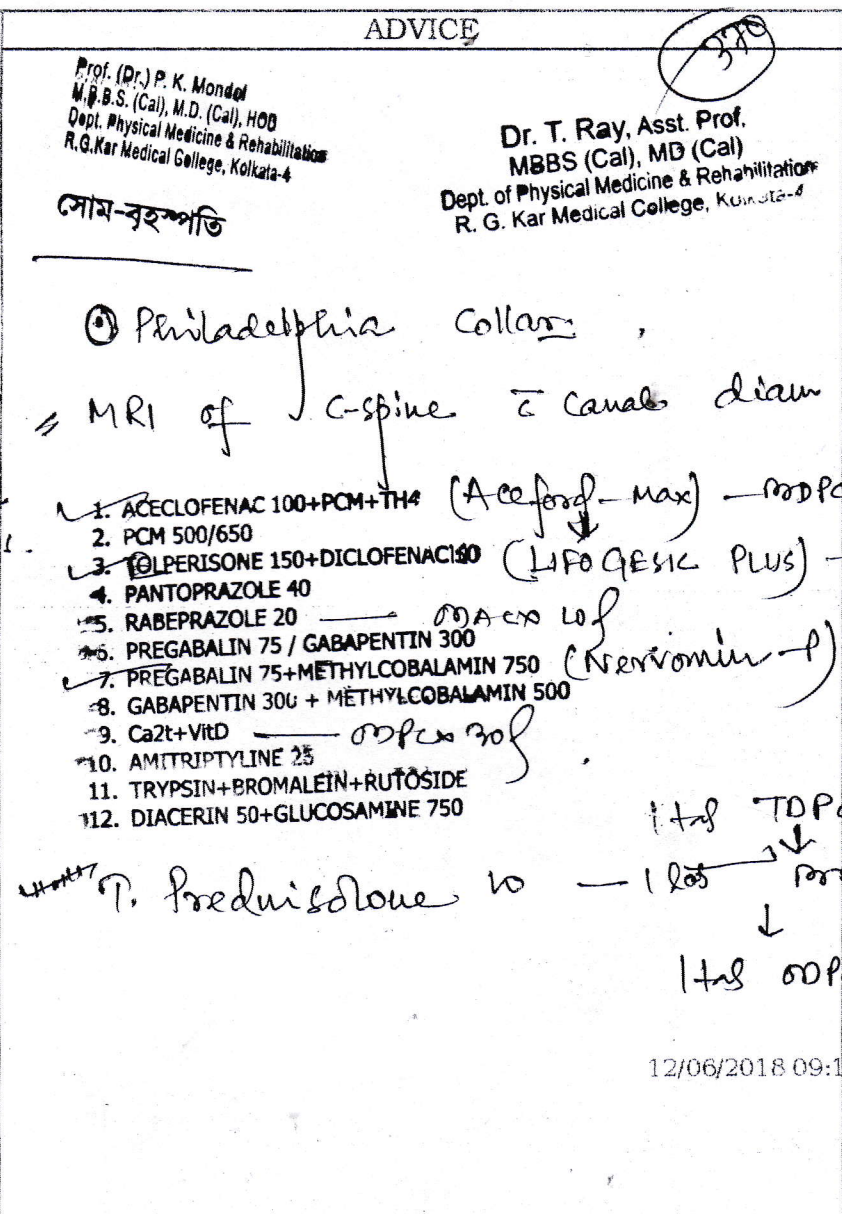 ADVICE
370
Prof. (Dr.) P. K. Mondal
M.B.B.S. (Cal), M.D. (Cal), HOD
Dept. Physical Medicine & Rehabilitation
R.G.Kar Medical College, Kolkata-4
Dr. T. Ray, Asst. Prof.
MBBS (Cal), MD (Cal)
Dept. of Physical Medicine & Rehabilitation
R. G. Kar Medical College, Kolkata-4
সোম-বৃহস্পতি
Philadelphia Collar
MRI of C-spine c̄ canal diam
1. ACECLOFENAC 100+PCM+TH4 (Aceford-Max) - BDPC
2. PCM 500/650
3. TOLPERISONE 150+DICLOFENAC (LIFOGESIC PLUS) -
4. PANTOPRAZOLE 40
5. RABEPRAZOLE 20
6. PREGABALIN 75 / GABAPENTIN 300
7. PREGABALIN 75+METHYLCOBALAMIN 750 (Nervomin-P)
8. GABAPENTIN 300 + METHYLCOBALAMIN 500
9. Ca2t+VitD
10. AMITRIPTYLINE 25
11. TRYPSIN+BROMALEIN+RUTOSIDE
112. DIACERIN 50+GLUCOSAMINE 750
1 tab TDPC
T. Prednisolone 10 -
1 tab ODPC
12/06/2018 09:1